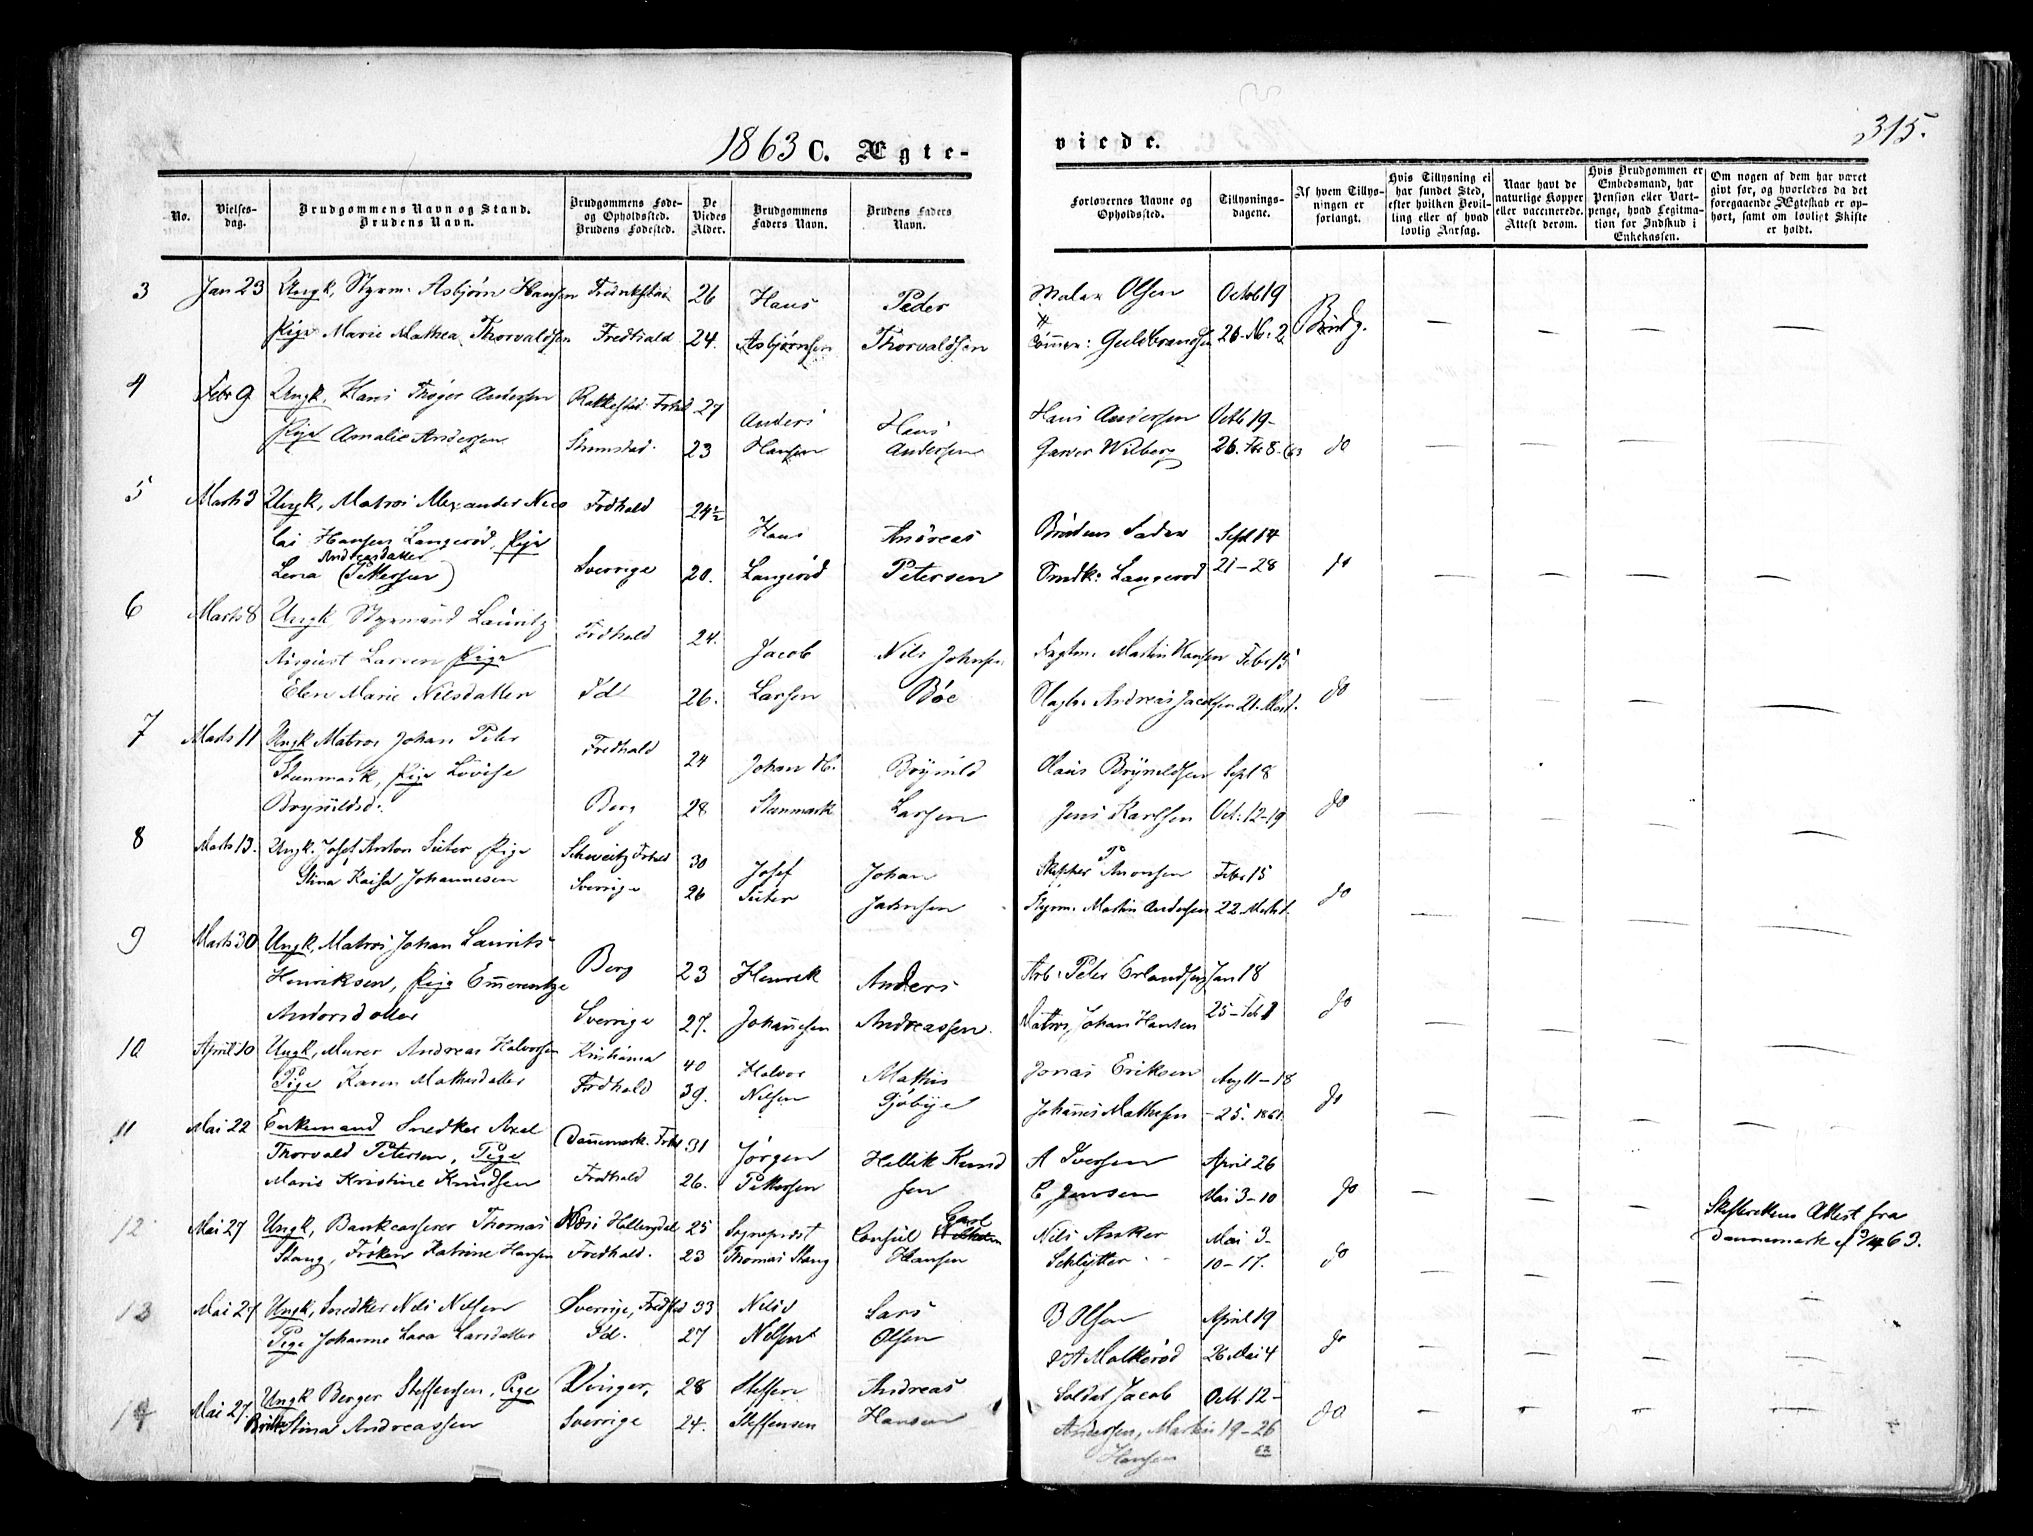 1863 C. Ægte-
viede.
315.
No.
Vielses-
dag.
Brudgommens Navn og Stand.
Brudens Navn.
Brudgommens Føde-
og Opholdssted.
Brudens Fødested.
De
Viedes
Alder.
Brudgommens
Faders Navn.
Brudens Faders
Navn.
Forlovernes Navne og
Opholdssted.
Tillysnings-
dagene.
Af hvem Tillys-
ningen er
forlangt.
Hvis Tillysning ei
har fundet Sted,
efter hvilken Bevil-
ling eller af hvad
lovlig Aarsag.
Naar havt de
naturlige Kopper
eller vaccinerede.
Attest derom.
Hvis Brudgommen er
Embedsmand, har
Pension eller Vart-
penge, hvad Legitima-
tion for Indskud i
Enkekassen.
Om nogen af dem har været
givt før, og hvorledes da det
foregaaende Ægteskab er op-
hørt, samt om lovligt Skifte
er holdt.
3 Jan 23 Ungk, Styrm. Asbjørn Hansen Fredrikstad 26 Hans Peder Maler Olsen Octob 19
Pige Marie Mathea Thorvaldsen Fredhald 24. Asbjørnsen Thorvaldsen Tømmer: Guldbrandsen 26-No. 2 Brudg.
4 Febr 9 Ungk, Hans Thøger Andersen Rakkestad Frhd 27 Anders Hans Hans Andersen Octb 19-
Pige Amalie Andersen Strømstad. 23 Hansen Andersen Garver Wilberg 26. Fbr 8-63 do
5 Marts 3 Ungk, Matros Alexander Nico Fredhald 24½ Hans Andreas Brudens Fader Sept 14
lai Hansen Langerød, Pige
Andreasdatter
Lena (Pettersen) Sverrige 20. Langerød Petersen Smdk: Langerød 21-28 do
6 Marts 8 Ungk Styrmand Lauritz Fredhald 24. Jacob Nils Johnsen Fagtm. Martin Hansen Febr 15
August Larsen Pige
Elen Marie Nilsdatter Id 26. Larsen Bøe Slagter Andreas Jacobsen 21. Mart. do
7 Marts 11 Ungk Matros Johan Peter Fredhald 24 Johan H. Brynild Claus Brynildsen Sept 8
Stenmark, Pige Lovise
Brynildsd. Berg 28 Stenmark Larsen Jens Karlsen Oct. 12-19 do
8 Marts 13. Ungk. Josef Anton Suter Pige Schweitz Frhd 30 Josef Johan Skipper Amonsen Febr 15
Stina Kaisa Johannesen Sverrige 26 Suter Jakobsen Styrm. Martin Andersen 22. Marts 1. do
9 Marts 30 Ungk, Matros Johan Laurits Berg 23 Henrik Anders Arb. Peter Erlandsen Jan 18
Henriksen, Pige Emerentze
Andersdatter Sverrige 27. Johannesen Andreassen. Matros Johan Hansen 25-Feb 1 do
10 April 10 Ungk, Murer Andreas Halvorsen Kristiania 40 Halvor Mathis Jonas Eriksen Aug 11-18
Pige Karen Mathisdatter Fredhald 39. Nilsen Gjøbye Johannes Mathisen -25. 1861. do
11 Mai 22 Enkemand Snedker Axel Danemark. Frhd 31 Jørgen Hellik Knud A Iversen April 26
Thorvald Petersen, Pige
Marie Kristine Knudsen Fredhald 26. Pettersen sen C Jensen Mai 3-10 do
Skifterettens Attest fra
Dannemark af 9/4 63.
12 Mai 27 Ungk, Bankcasserer Thomas Næs Hallingdal 25 Sogneprest Consul Carl Nils Anker Mai 3-
Stang, Frøken Katrine Hansen Fredhald. 23 Thomas Stang Hansen Schlytter 10-17. do
13 Mai 27 Ungk, Snedker Nils Nilsen Sverrige, Fredhld 33 Nils Lars B Olsen April 19
Pige Johanne Lara Larsdatter Id. 27 Nilsen Olsen Malkerød 26 Mai 4 do
14 Mai 27. Ungk Berger Steffensen, Pige Vinger, 28 Steffen Andreas Soldat Jacob Octb. 12-
Britta Stina Andreassen Sverrige 24. Steffensen Hansen Andersen, Martin 19-26 do
Hansen 62